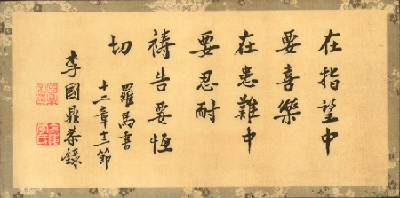 在指望中
要喜樂
在患難中
要忍耐
禱告要恆
切
羅馬書
十二章十二節
李國鼎恭錄